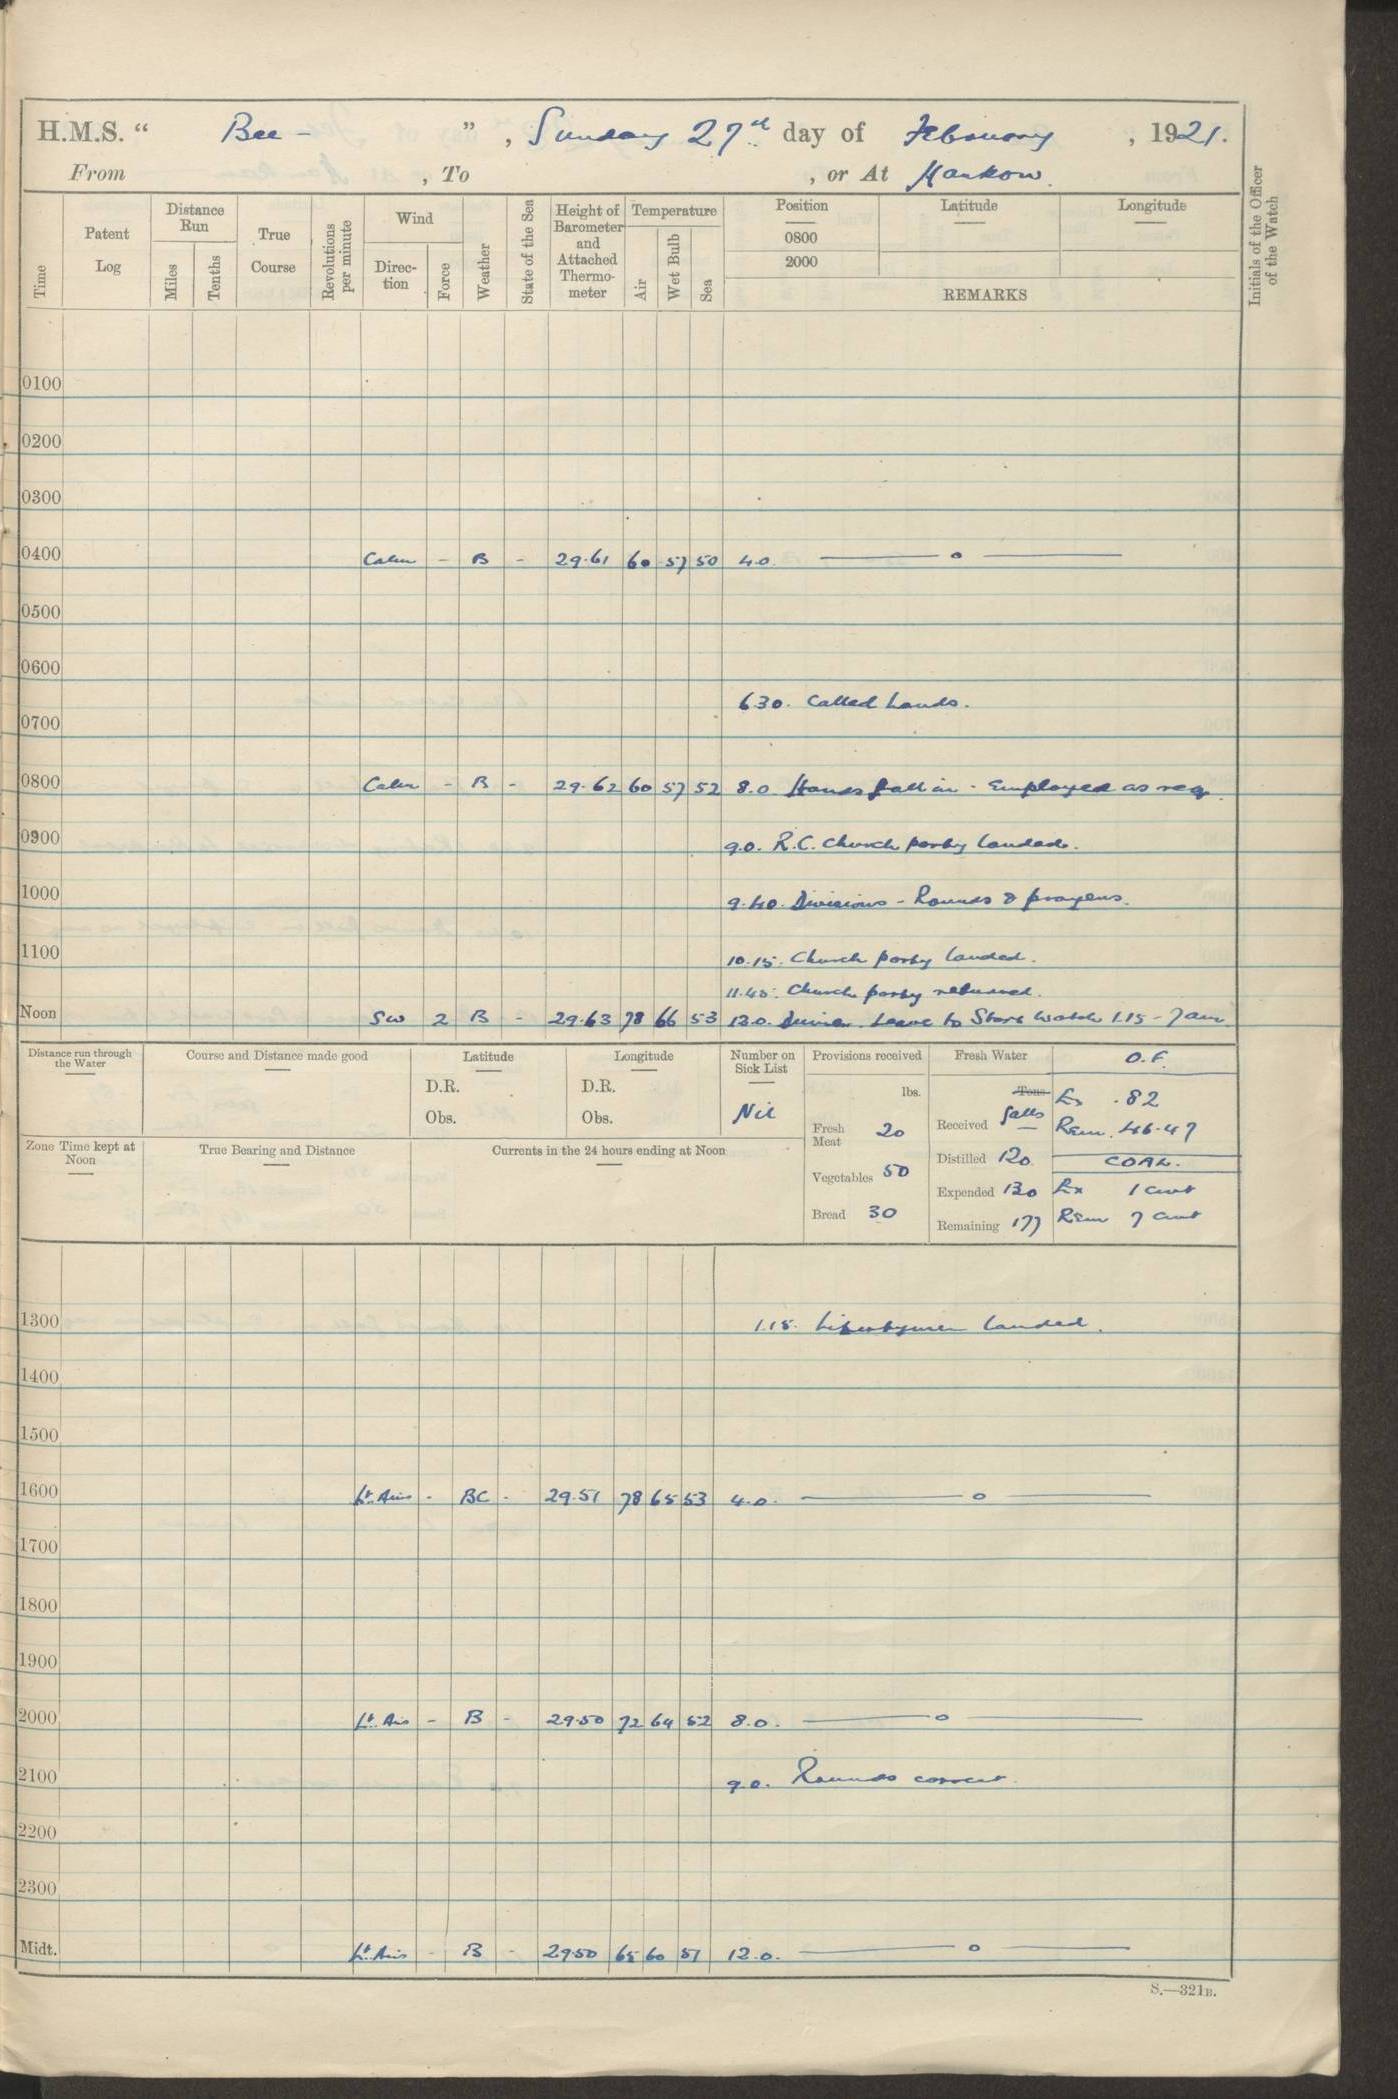 H.M.S. “ Bee - ” , Sunday 27th day of February , 1921.
From , To , or At Hankow.
Time
Patent Log
Distance Run
Miles
Tenths
True Course
Revolutions per minute
Wind
Direc-tion
Force
Weather
State of the Sea
Height of Barometer and Attached Thermo-meter
Temperature
Air
Wet Bulb
Sea
Position
0800
2000
Latitude
Longitude
REMARKS
Initials of the Officer of the Watch
0100
0200
0300
0400 Calm - B - 29.61 60 57 50 4.0. —— o ——
0500
0600
6.30. Called hands.
0700
0800 Calm - B - 29.62 60 57 52 8.0 Hands fall in - Employed as req.
0900 9.0. R.C. Church party landed.
1000 9.40. Divisions - Rounds & prayers.
1100 10.15. Church party landed.
11.45. Church party returned.
Noon SW 2 B - 29.63 78 66 53 12.0. Dinner. Leave to Starb Watch 1.15 - 7am
Distance run through the Water
Course and Distance made good
Latitude
D.R.
Obs.
Longitude
D.R.
Obs.
Number on Sick List
Nil
Provisions received
lbs.
Fresh Meat 20
Vegetables 50
Bread 30
Fresh Water
Tons
Galls
Received —
Distilled 120
Expended 130
Remaining 177
O.F.
Ex .82
Rem. 46.47
COAL.
Ex 1 cwt
Rem 7 cwt
Zone Time kept at Noon
True Bearing and Distance
Currents in the 24 hours ending at Noon
1300 1.15. Libertymen landed.
1400
1500
1600 Lt. Airs - BC - 29.51 78 65 53 4.0. —— o ——
1700
1800
1900
2000 Lt. Airs - B - 29.50 72 64 52 8.0. —— o ——
2100 9.0. Rounds correct.
2200
2300
Midt. Lt. Airs - B - 29.50 65 60 51 12.0. —— o ——
S.—321B.